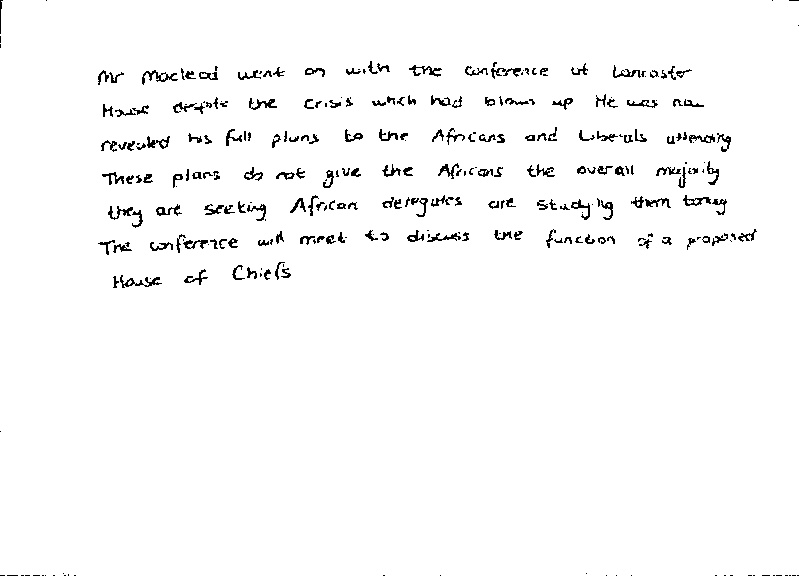 Mr Macleod went on with the conference at Lancaster
House despite the crisis which had blown up He was now
revealed his full plans to the Africans and Liberals attending
These plans do not give the Africans the overall majority
they are seeking African delegates are studying them today
The conference will meet to discuss the function of a proposed
House of Chiefs